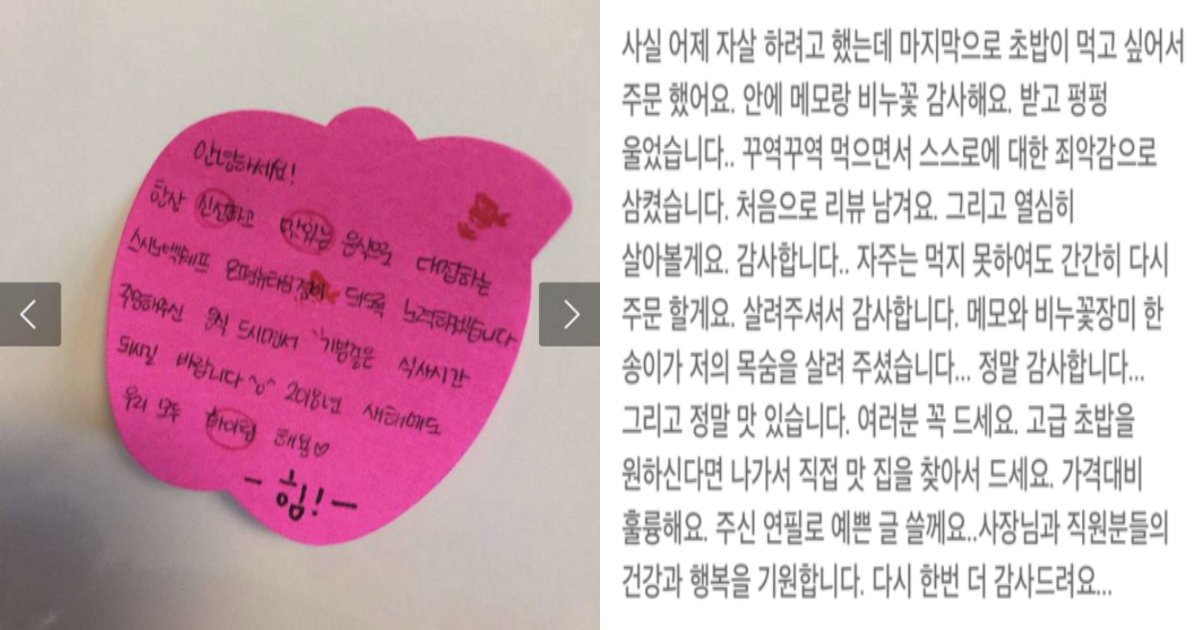 안녕하세요!
항상 신선하고 만위님 음식으로 대접하는
스시노백쉐프 온평뉴타운점이 되도록 노력하겠습니다
주문하신 음식 드시면서 기방 같은 식사시간
되시길 바랍니다 ^o^ 2018년 새해에도
우리 모두 화이링 해용♡
- 힘! -
사실 어제 자살 하려고 했는데 마지막으로 초밥이 먹고 싶어서
주문 했어요. 안에 메모랑 비누꽃 감사해요. 받고 펑펑
울었습니다.. 꾸역꾸역 먹으면서 스스로에 대한 죄악감으로
삼켰습니다. 처음으로 리뷰 남겨요. 그리고 열심히
살아볼게요. 감사합니다.. 자주는 먹지 못하여도 간간히 다시
주문 할게요. 살려주셔서 감사합니다. 메모와 비누꽃장미 한
송이가 저의 목숨을 살려 주셨습니다... 정말 감사합니다...
그리고 정말 맛 있습니다. 여러분 꼭 드세요. 고급 초밥을
원하신다면 나가서 직접 맛 집을 찾아서 드세요. 가격대비
훌륭해요. 주신 연필로 예쁜 글 쓸께요..사장님과 직원분들의
건강과 행복을 기원합니다. 다시 한번 더 감사드려요...